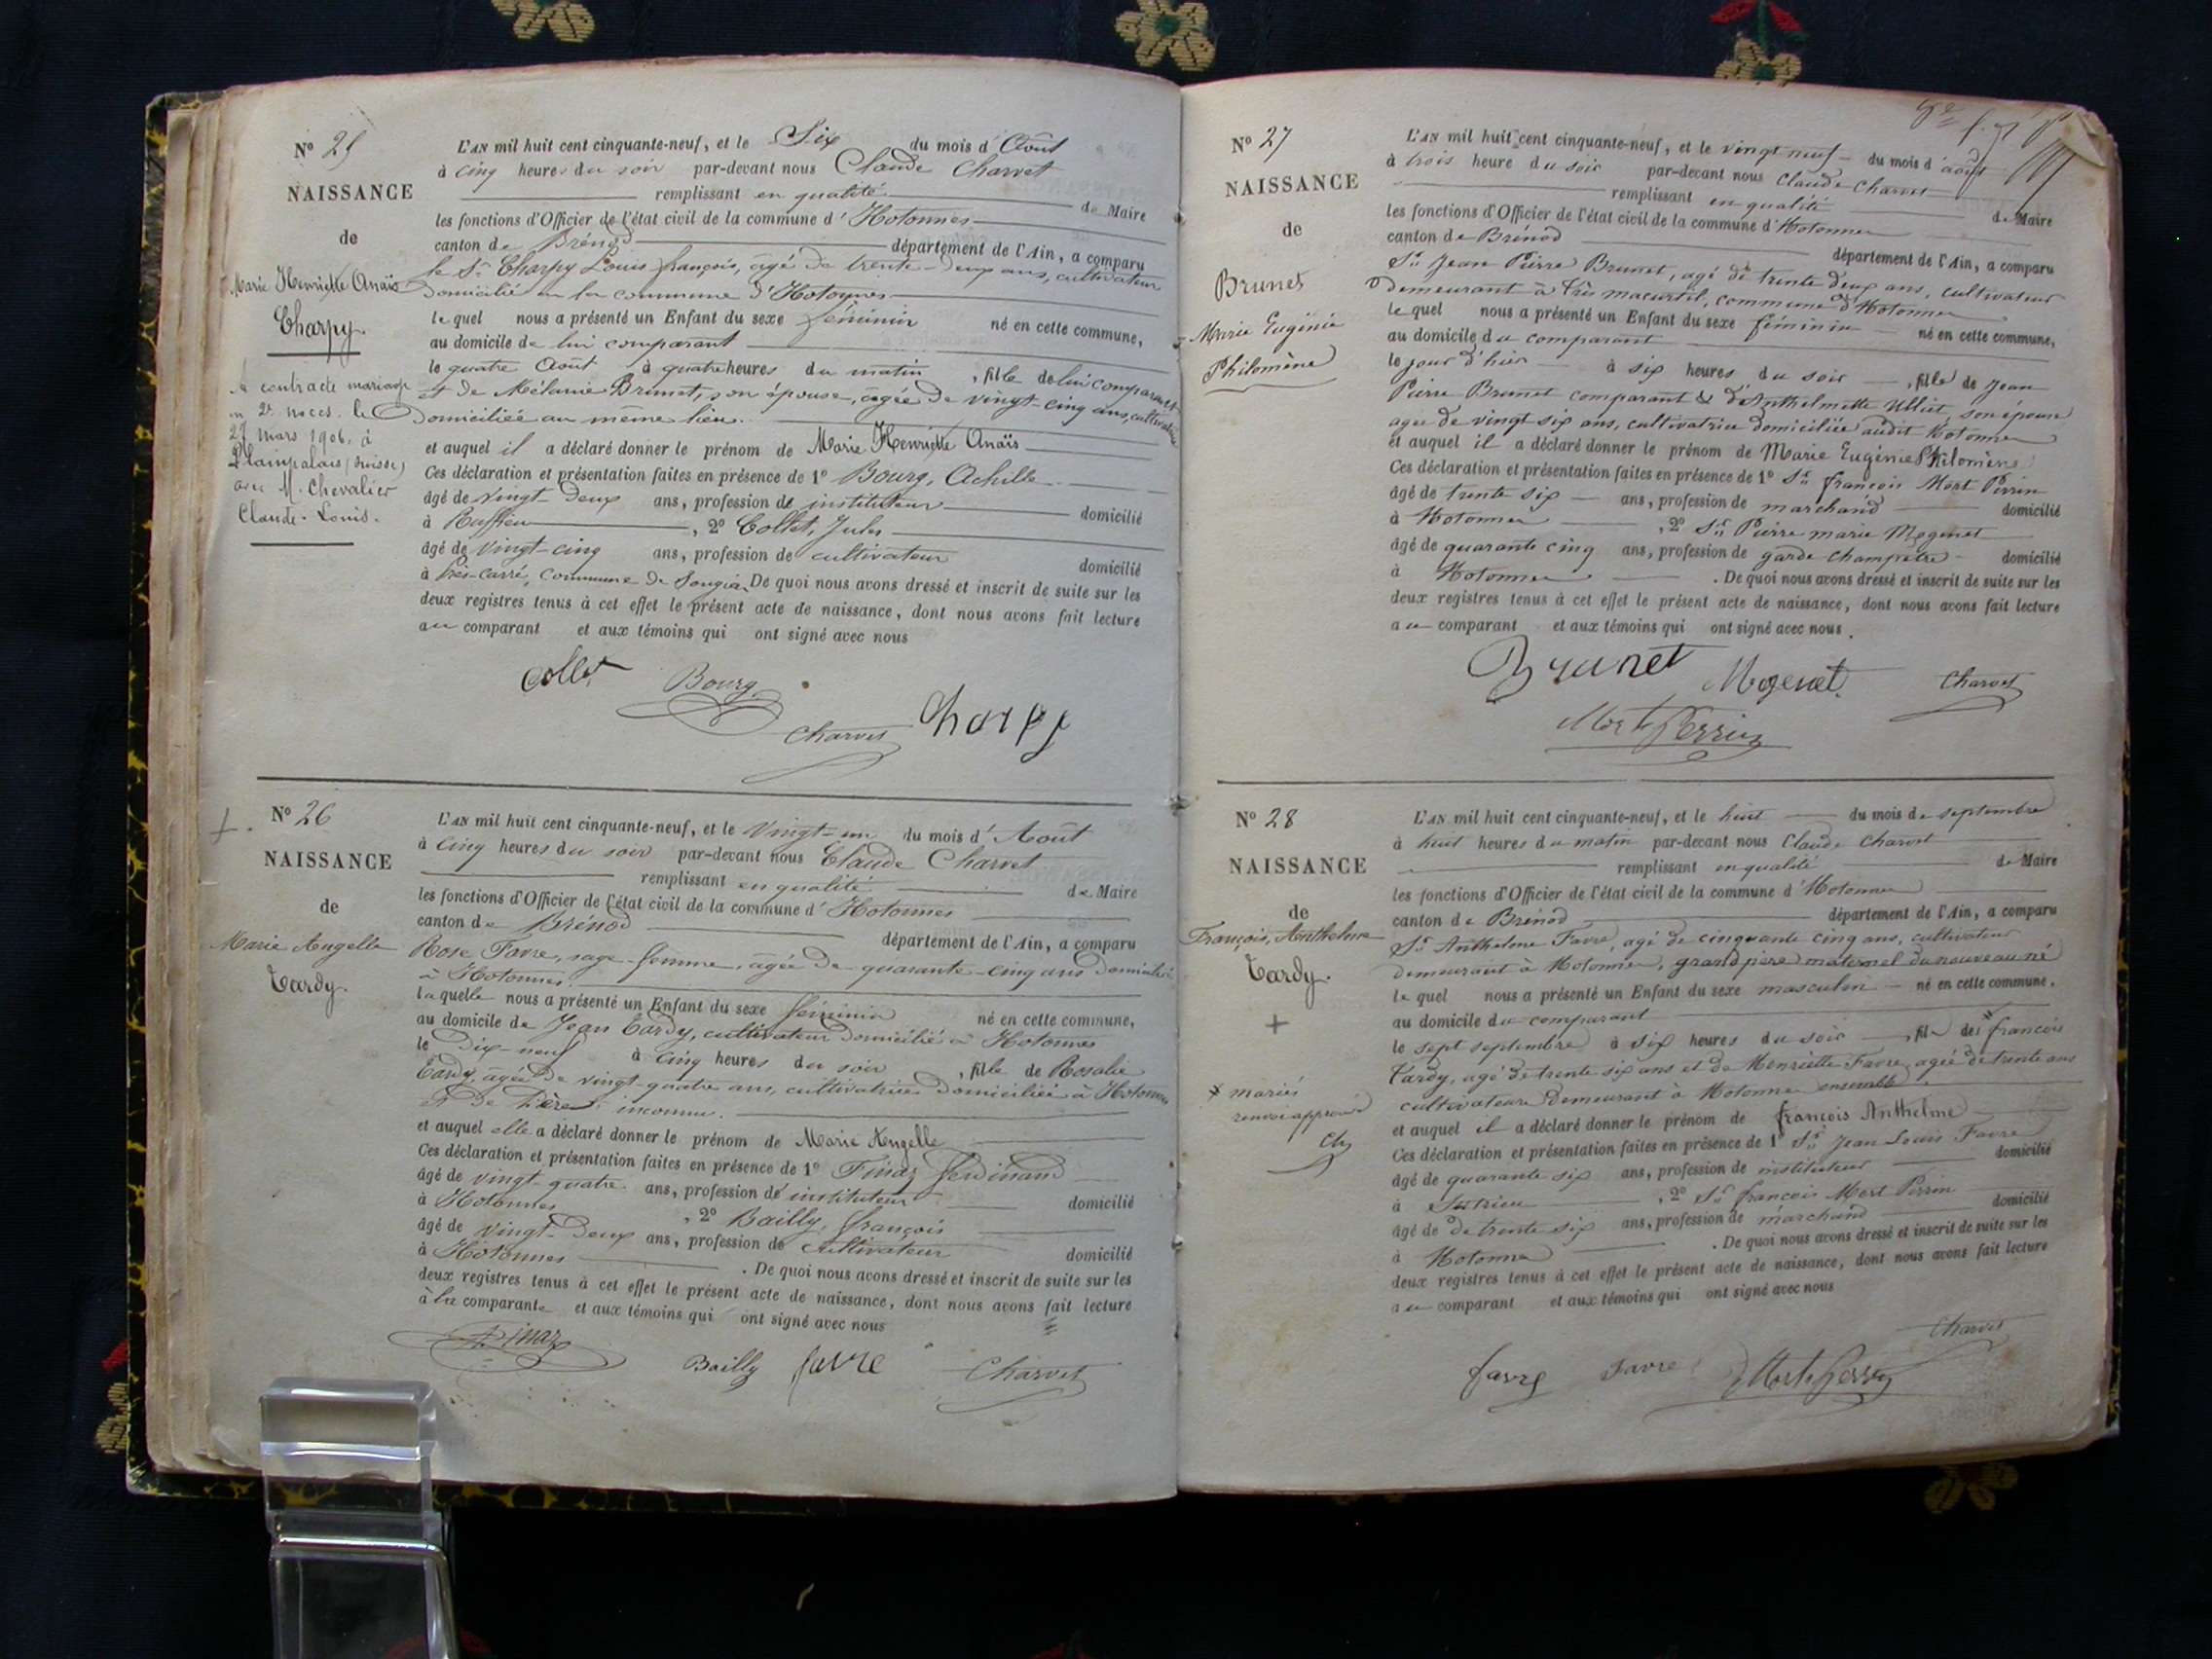 N° 25
NAISSANCE
de
Marie Henriette Anaïs
Charpy.
A contracté mariage
en 2es noces le
27 mars 1906, à
Plainpalais (Suisse)
avec M. Chevalier
Claude-Louis.
L'AN mil huit cent cinquante-neuf, et le Six du mois d'Août
à cinq heures du soir par-devant nous Claude Charvet
remplissant en qualité de Maire
les fonctions d'Officier de l'état civil de la commune d'Hotonnes
canton de Brénod département de l'Ain, a comparu
le Sr Charpy Louis françois, âgé de trente-deux ans, cultivateur
domicilié en la commune d'Hotonnes
lequel nous a présenté un Enfant du sexe féminin né en cette commune,
au domicile de lui comparant
le quatre Août à quatre heures du matin, fille de lui comparant
et de Mélanie Brunet, son épouse, âgée de vingt-cinq ans, cultivatrice
domiciliée au même lieu.
et auquel il a déclaré donner le prénom de Marie Henriette Anaïs
Ces déclaration et présentation faites en présence de 1° Bourg, Achille
âgé de vingt-deux ans, profession de instituteur domicilié
à Ruffieu, 2° Collet, Jules
âgé de vingt-cinq ans, profession de cultivateur domicilié
à Prés-carré, commune de Songieu. De quoi nous avons dressé et inscrit de suite sur les
deux registres tenus à cet effet le présent acte de naissance, dont nous avons fait lecture
au comparant et aux témoins qui ont signé avec nous
Collet Bourg
Charvet Charpy
N° 26
NAISSANCE
de
Marie Angelle
Tardy.
L'AN mil huit cent cinquante-neuf, et le Vingt-un du mois d'Août
à cinq heures du soir par-devant nous Claude Charvet
remplissant en qualité de Maire
les fonctions d'Officier de l'état civil de la commune d'Hotonnes
canton de Brénod département de l'Ain, a comparu
Rose Favre, sage-femme, âgée de quarante-cinq ans domiciliée
à Hotonnes.
laquelle nous a présenté un Enfant du sexe féminin né en cette commune,
au domicile de Jean Tardy, cultivateur domicilié à Hotonnes
le Dix-neuf à cinq heures du soir, fille de Rosalie
Tardy, âgée de vingt-quatre ans, cultivatrice domiciliée à Hotonnes
et de Père inconnu.
et auquel elle a déclaré donner le prénom de Marie Angelle
Ces déclaration et présentation faites en présence de 1° Finaz Ferdinand
âgé de vingt-quatre ans, profession de instituteur domicilié
à Hotonnes, 2° Bailly, françois
âgé de vingt-deux ans, profession de cultivateur domicilié
à Hotonnes. De quoi nous avons dressé et inscrit de suite sur les
deux registres tenus à cet effet le présent acte de naissance, dont nous avons fait lecture
à la comparante et aux témoins qui ont signé avec nous
Finaz Bailly favre Charvet
N° 27
NAISSANCE
de
Brunet
Marie Eugénie
Philomène
L'AN mil huit cent cinquante-neuf, et le vingt neuf du mois d'août
à trois heure du soir par-devant nous Claude Charvet
remplissant en qualité de Maire
les fonctions d'Officier de l'état civil de la commune d'Hotonnes
canton de Brénod département de l'Ain, a comparu
Sr Jean Pierre Brunet, agé de trente deux ans, cultivateur
demeurant à commune d'Hotonnes
lequel nous a présenté un Enfant du sexe féminin né en cette commune,
au domicile du comparant
le jour d'hier à six heures du soir, fille de Jean
Pierre Brunet comparant & d'Anthelmette Ulliet, son épouse
agée de vingt six ans, cultivatrice domiciliée audit Hotonnes
et auquel il a déclaré donner le prénom de Marie Eugénie Philomène
Ces déclaration et présentation faites en présence de 1° Sr françois Mort Perrin
âgé de trente six ans, profession de marchand domicilié
à Hotonnes, 2° Sr Pierre marie Mogenet
âgé de quarante cinq ans, profession de garde champetre domicilié
à Hotonnes. De quoi nous avons dressé et inscrit de suite sur les
deux registres tenus à cet effet le présent acte de naissance, dont nous avons fait lecture
au comparant et aux témoins qui ont signé avec nous.
Brunet Mogenet Charvet
Mort Perrin
N° 28
NAISSANCE
de
François, Anthelme
Tardy.
mariés
renvoi approuvé
Ch
L'AN mil huit cent cinquante-neuf, et le huit du mois de septembre
à huit heures du matin par-devant nous Claude Charvet
remplissant en qualité de Maire
les fonctions d'Officier de l'état civil de la commune d'Hotonnes
canton de Brénod département de l'Ain, a comparu
Sr Anthelme Favre, agé de cinquante cinq ans, cultivateur
demeurant à Hotonnes, grand pere maternel du nouveau né
lequel nous a présenté un Enfant du sexe masculin né en cette commune,
au domicile du comparant
le sept septembre à six heures du soir, fils de françois
Tardy, agé de trente six ans et de Henriette Favre agée de trente ans
cultivateurs demeurant à Hotonnes ensemble
et auquel il a déclaré donner le prénom de françois Anthelme
Ces déclaration et présentation faites en présence de 1° Sr Jean Louis Favre
âgé de quarante six ans, profession de instituteur domicilié
à Sutrieu, 2° Sr françois Mort Perrin
âgé de trente six ans, profession de marchand domicilié
à Hotonnes. De quoi nous avons dressé et inscrit de suite sur les
deux registres tenus à cet effet le présent acte de naissance, dont nous avons fait lecture
au comparant et aux témoins qui ont signé avec nous
Charvet
favre favre Mort Perrin